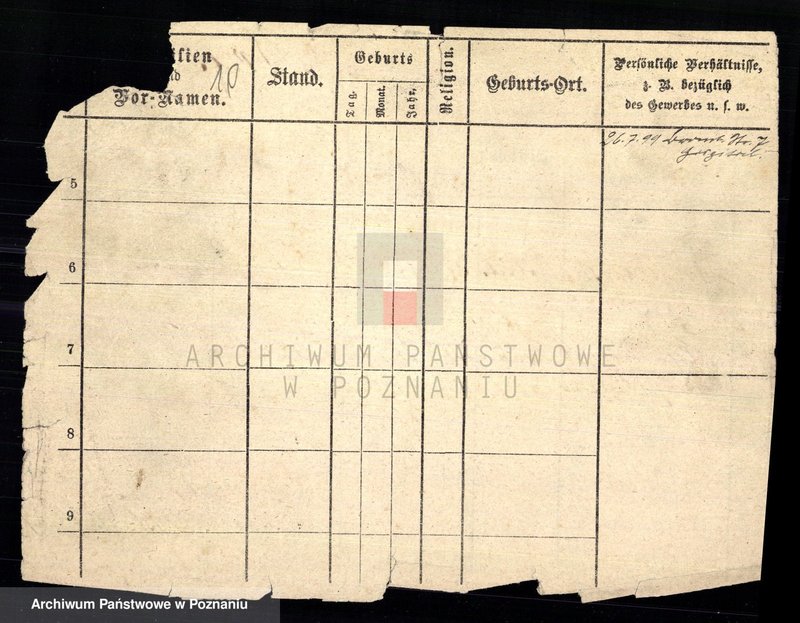 ilien
nd
Vor-Namen.
10
Stand.
Geburts
Tag.
Monat.
Jahr.
Religion.
Geburts-Ort.
Persönliche Verhältnisse,
z. B. bezüglich
des Gewerbes u. s. w.
26.7.99 Str. 7
Hospital.
5
6
7
8
9
ARCHIWUM PAŃSTWOWE
W POZNANIU
Archiwum Państwowe w Poznaniu